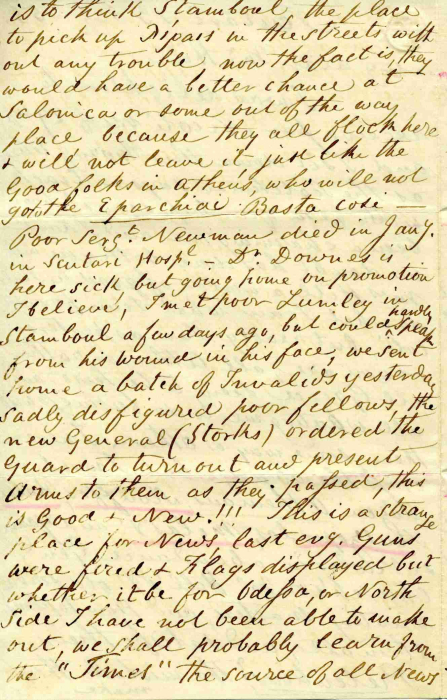 is to think Stamboul the place
to pick up Dipais in the streets with
out any trouble now the fact is, they
would have a better chance at
Salonica or some out of the way
place because they all flock here
& will not leave it just like the
Good folks in Athens, who will not
go to the Eparchiai Basta cosi —
Poor Sergt. Newman died in Jany.
in Scutari Hospl. – Dr. Downes is
here sick but going home on promotion
I believe, I met poor Lumley in
Stamboul a few days ago, but could hardly speak
from his wound in his face, we sent
home a batch of Invalids yesterday
sadly disfigured poor fellows, the
new General (Storks) ordered the
Guard to turn out and present
Arms to them as they passed, this
is Good & New!!! This is a strange
place for News last evg. Guns
were fired & Flags displayed but
whether it be for Odessa, or North
side I have not been able to make
out, we shall probably learn from
the "Times" the source of all News